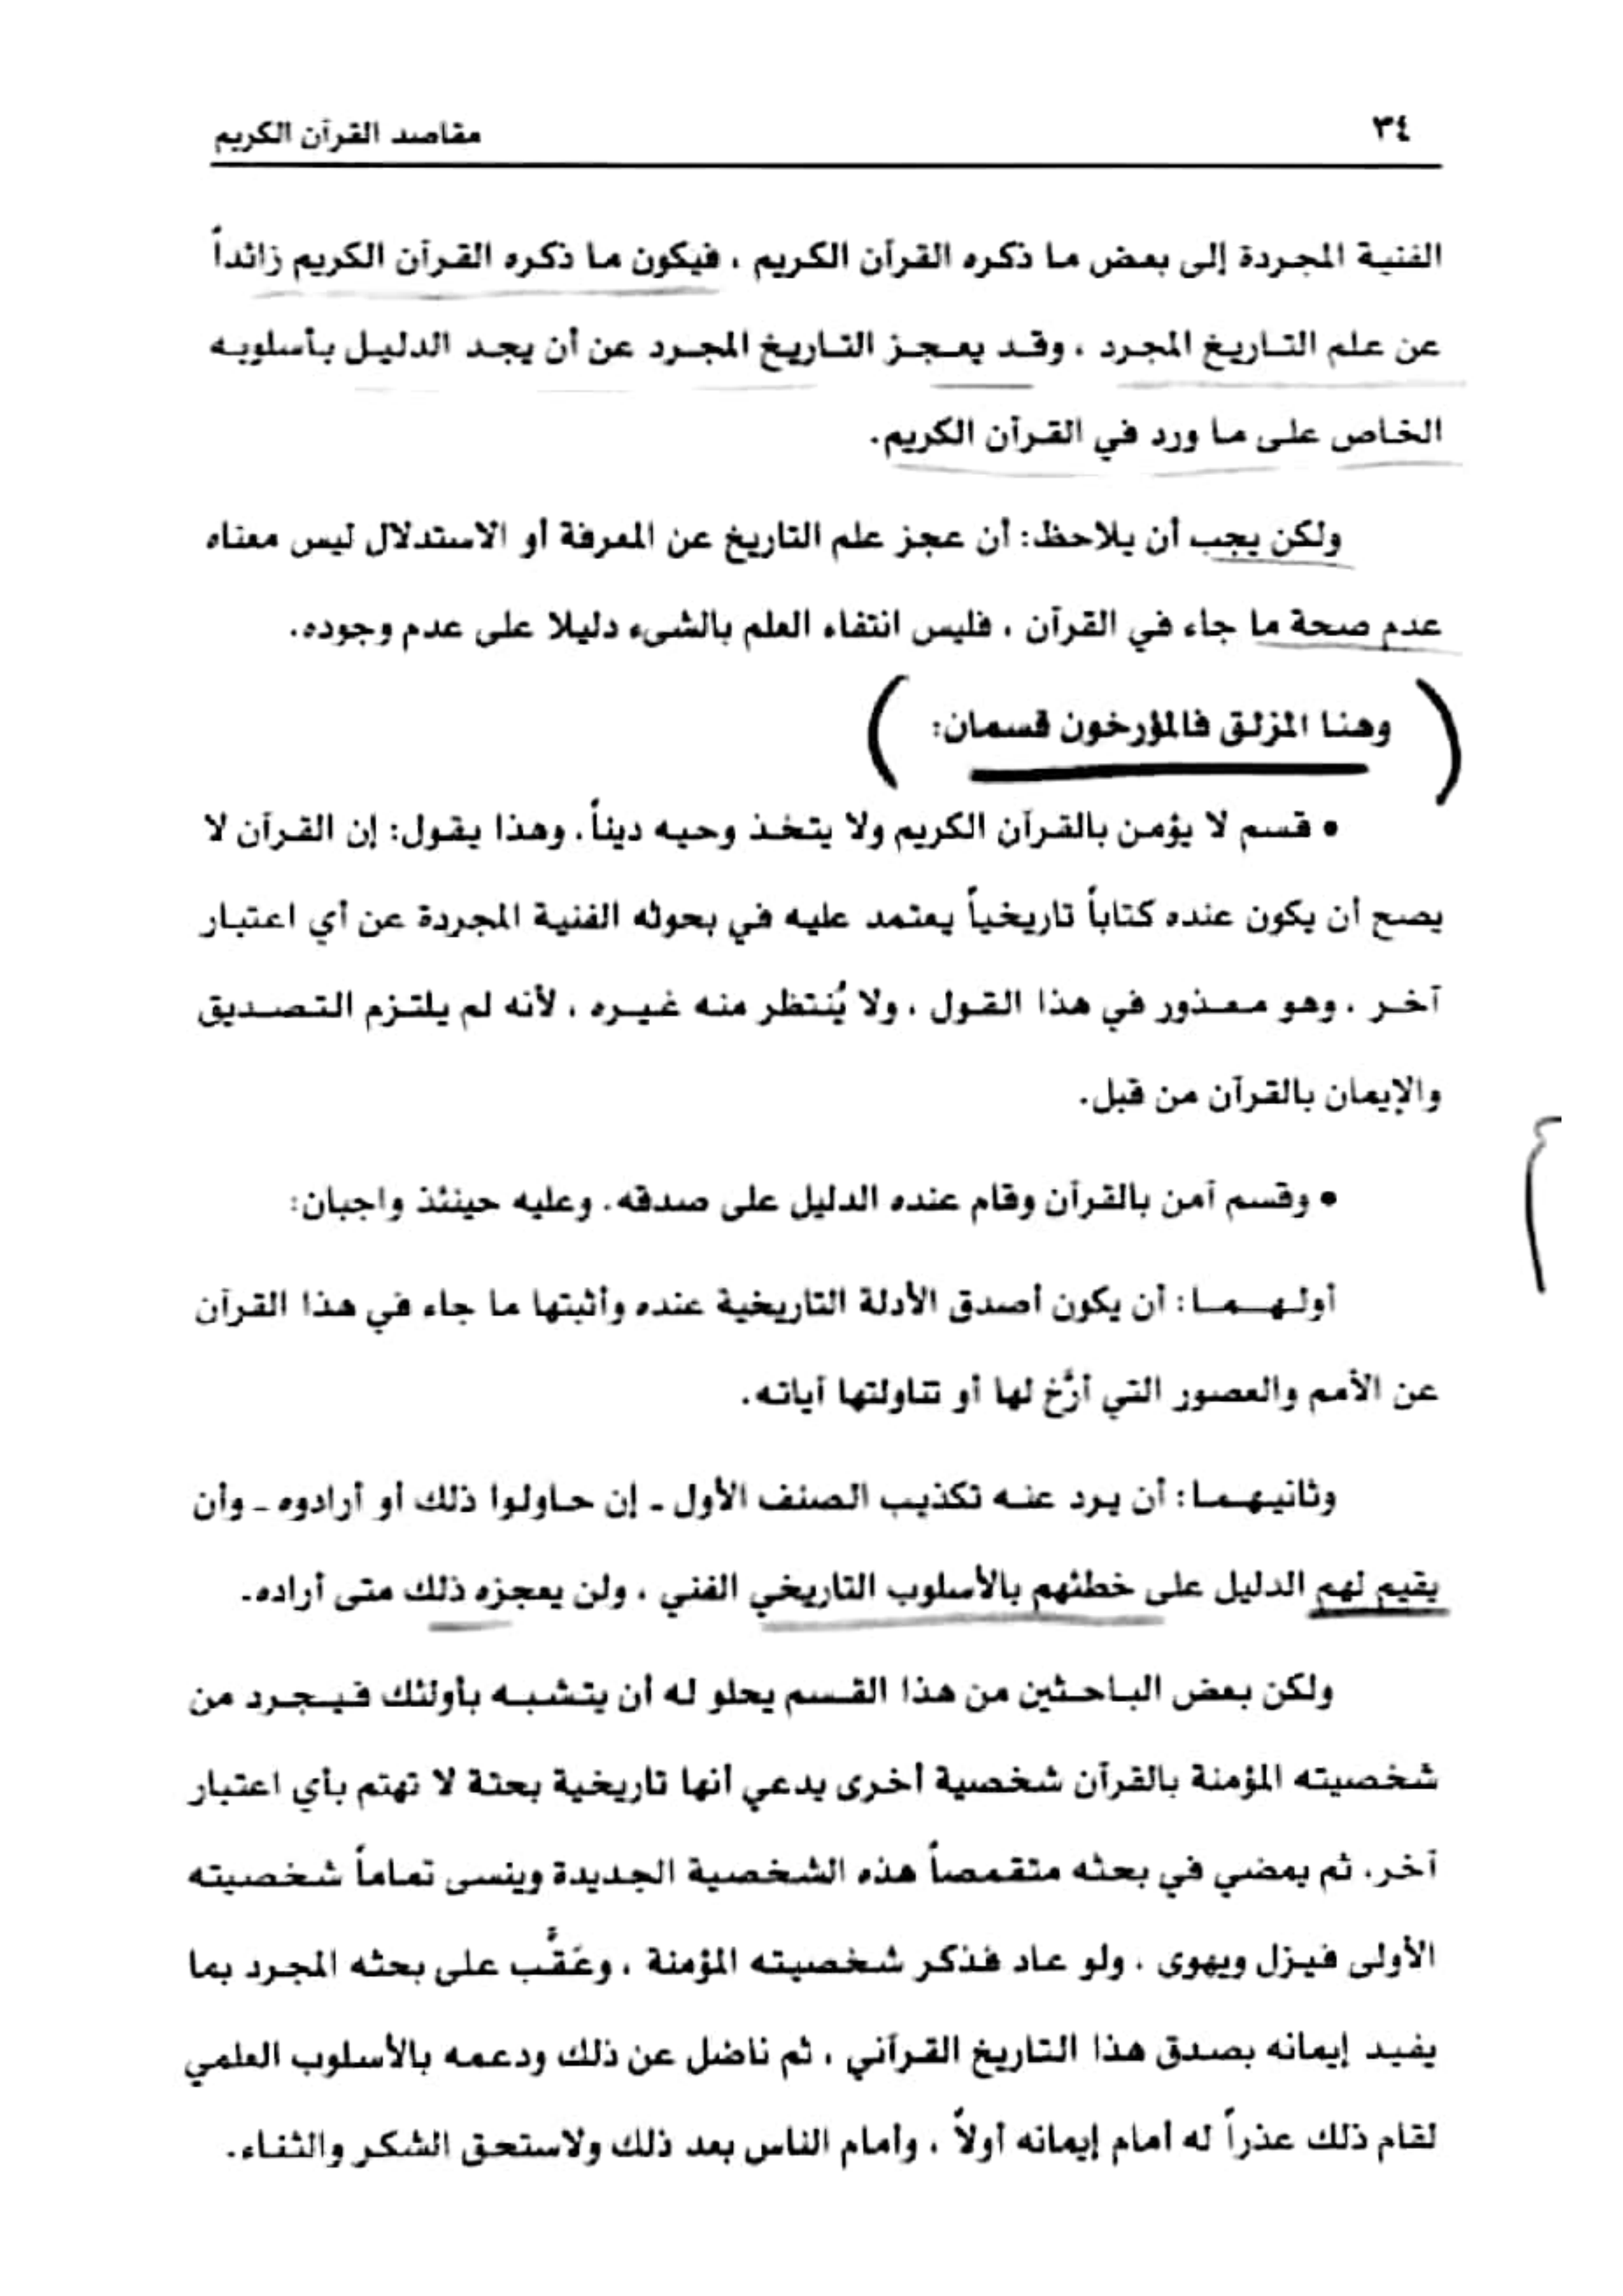 ٣٤
مقاصد القرآن الكريم
الفنية المجردة إلى بعض ما ذكره القرآن الكريم ، فيكون ما ذكره القرآن الكريم زائداً
عن علم التاريخ المجرد ، وقد يعجز التاريخ المجرد عن أن يجد الدليل بأسلوبه
الخاص على ما ورد في القرآن الكريم.
ولكن يجب أن يلاحظ: أن عجز علم التاريخ عن المعرفة أو الاستدلال ليس معناه
عدم صحة ما جاء في القرآن ، فليس انتفاء العلم بالشيء دليلا على عدم وجوده.
وهنا المزلق فالمؤرخون قسمان:
• قسم لا يؤمن بالقرآن الكريم ولا يتخذ وحيه ديناً. وهذا يقول: إن القرآن لا
يصح أن يكون عنده كتاباً تاريخياً يعتمد عليه في بحوثه الفنية المجردة عن أي اعتبار
آخر ، وهو معذور في هذا القول ، ولا يُنتظر منه غيره ، لأنه لم يلتزم التصديق
والإيمان بالقرآن من قبل.
• وقسم آمن بالقرآن وقام عنده الدليل على صدقه. وعليه حينئذ واجبان:
أولهما: أن يكون أصدق الأدلة التاريخية عنده وأثبتها ما جاء في هذا القرآن
عن الأمم والعصور التي أرَّخ لها أو تناولتها آياته.
وثانيهما: أن يرد عنه تكذيب الصنف الأول ـ إن حاولوا ذلك أو أرادوه ـ وأن
يقيم لهم الدليل على خطئهم بالأسلوب التاريخي الفني ، ولن يعجزه ذلك متى أراده.
ولكن بعض الباحثين من هذا القسم يحلو له أن يتشبه بأولئك فيجرد من
شخصيته المؤمنة بالقرآن شخصية أخرى يدعي أنها تاريخية بحتة لا تهتم بأي اعتبار
آخر. ثم يمضي في بحثه متقمصاً هذه الشخصية الجديدة وينسى تماماً شخصيته
الأولى فيزل ويهوى ، ولو عاد فذكر شخصيته المؤمنة ، وعَقَّب على بحثه المجرد بما
يفيد إيمانه بصدق هذا التاريخ القرآني ، ثم ناضل عن ذلك ودعمه بالأسلوب العلمي
لقام ذلك عذراً له أمام إيمانه أولاً ، وأمام الناس بعد ذلك ولاستحق الشكر والثناء.